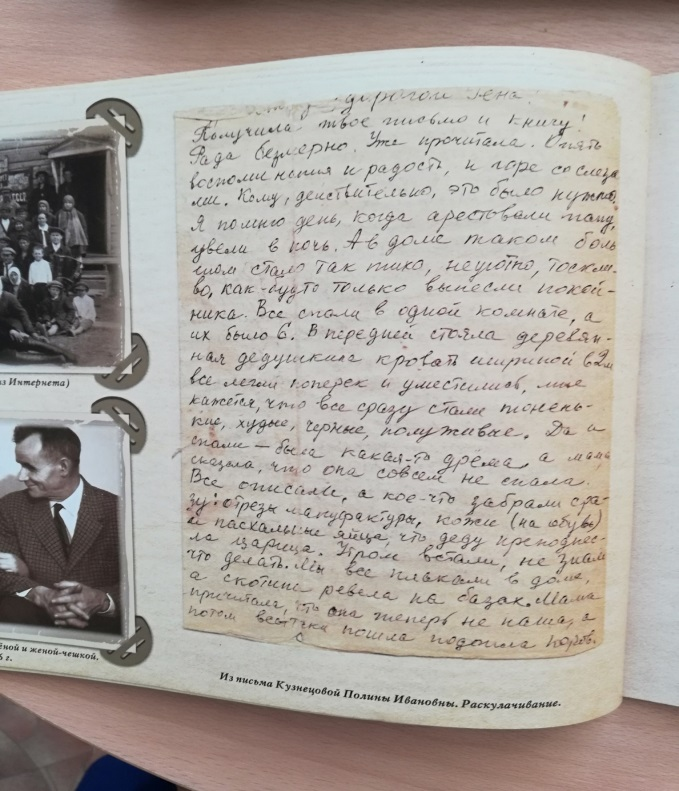 дорогой Гена!
Получила твое письмо и книгу!
Рада безмерно. Уже прочитала. Опять
воспоминания и радость, и горе со слеза
ми. Кому, действительно, это было нужно.
Я помню день, когда арестовали папу,
увели в ночь. А в доме таком боль
шом стало так тихо, неуютно, тоскли-
во, как-будто только вынесли покой-
ника. Все спали в одной комнате, а
их было 6. В передней стояла деревян-
ная дедушкина кровать шириной в 2м
все легли поперек и уместились, мне
кажется, что все сразу стали тонень-
кие, худые, черные, полуживые. Да и
спали – была какая-то дрёма, а мама
сказала, что она совсем не спала.
Все описали, а кое-что забрали сра-
зу: отрезы мануфактуры, кожи (на обувь)
и пасхальные яйца, что деду преподнес-
ла царица. Утром встали, не знали
что делать. Мы все плакали в доме,
а скотина ревела на базах. Мама
причитала, что она теперь не наша, а
потом пошла подоила коров.
из Интернета)
ёной и женой-чешкой.
6 г.
Из письма Кузнецовой Полины Ивановны. Раскулачивание.